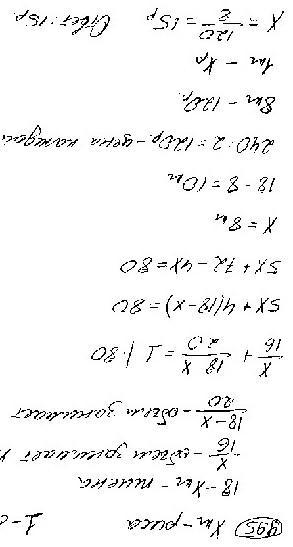 495 Xкг - риса 1-
18-Xкг - пшена
X/16 - объем занимает
18-X/20 - объем занимает
X/16 + 18-X/20 = 1 | · 80
5X + 4(18-X) = 80
5X + 72 - 4X = 80
X = 8кг
18 - 8 = 10кг
240 : 2 = 120р - цена каждой
8кг - 120р.
1кг - Xр
X = 120/8 = 15р Ответ: 15р